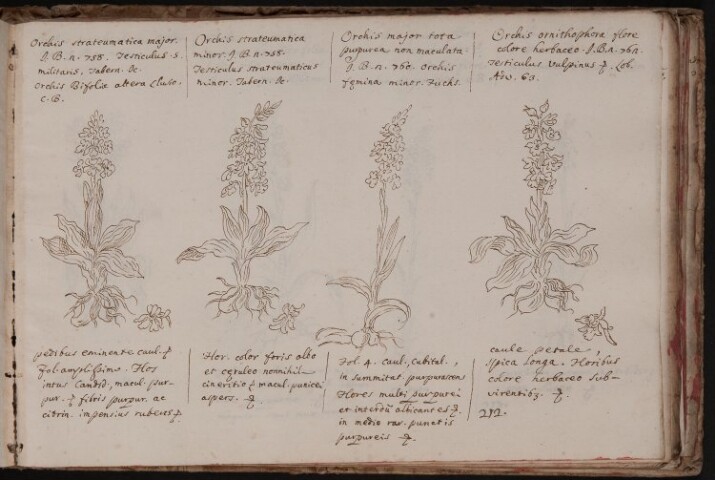 Orchis strateumatica major.
J.B.n. 758. Testiculus s.
militaris, Tabern. &c.
Orchis Bifolia altera Cluse.
C.B.
Orchis strateumatica
minor. J.B.n. 758.
Testiculus strateumaticus
minor. Tabern. &c.
Orchis major tota
purpurea non maculata
J.B.n. 760. Orchis
fęmina minor. Fuchs.
Orchis ornithophora flore
colore herbaceo J.B.n. 761.
Testiculus Vulpinus Lob.
Adv. 63.
pedibus eminente caul.
fol. amplissimo. Flos
intus Candid, macul. pur-
pur. fibris purpur. ac
citrin. impensius rubens
Flor. color foris albo
et cęruleo nonnihil
cineritio macul. punicei
aspers.
Fol. 4. caul. Cubital.,
in summitat. purpurascens
Flores multi purpurei
et interdū albicantes
in medio rar. punctis
purpureis
caule petale,
spica Longa. Floribus
colore herbaceo sub-
virentibꝫ.
212.